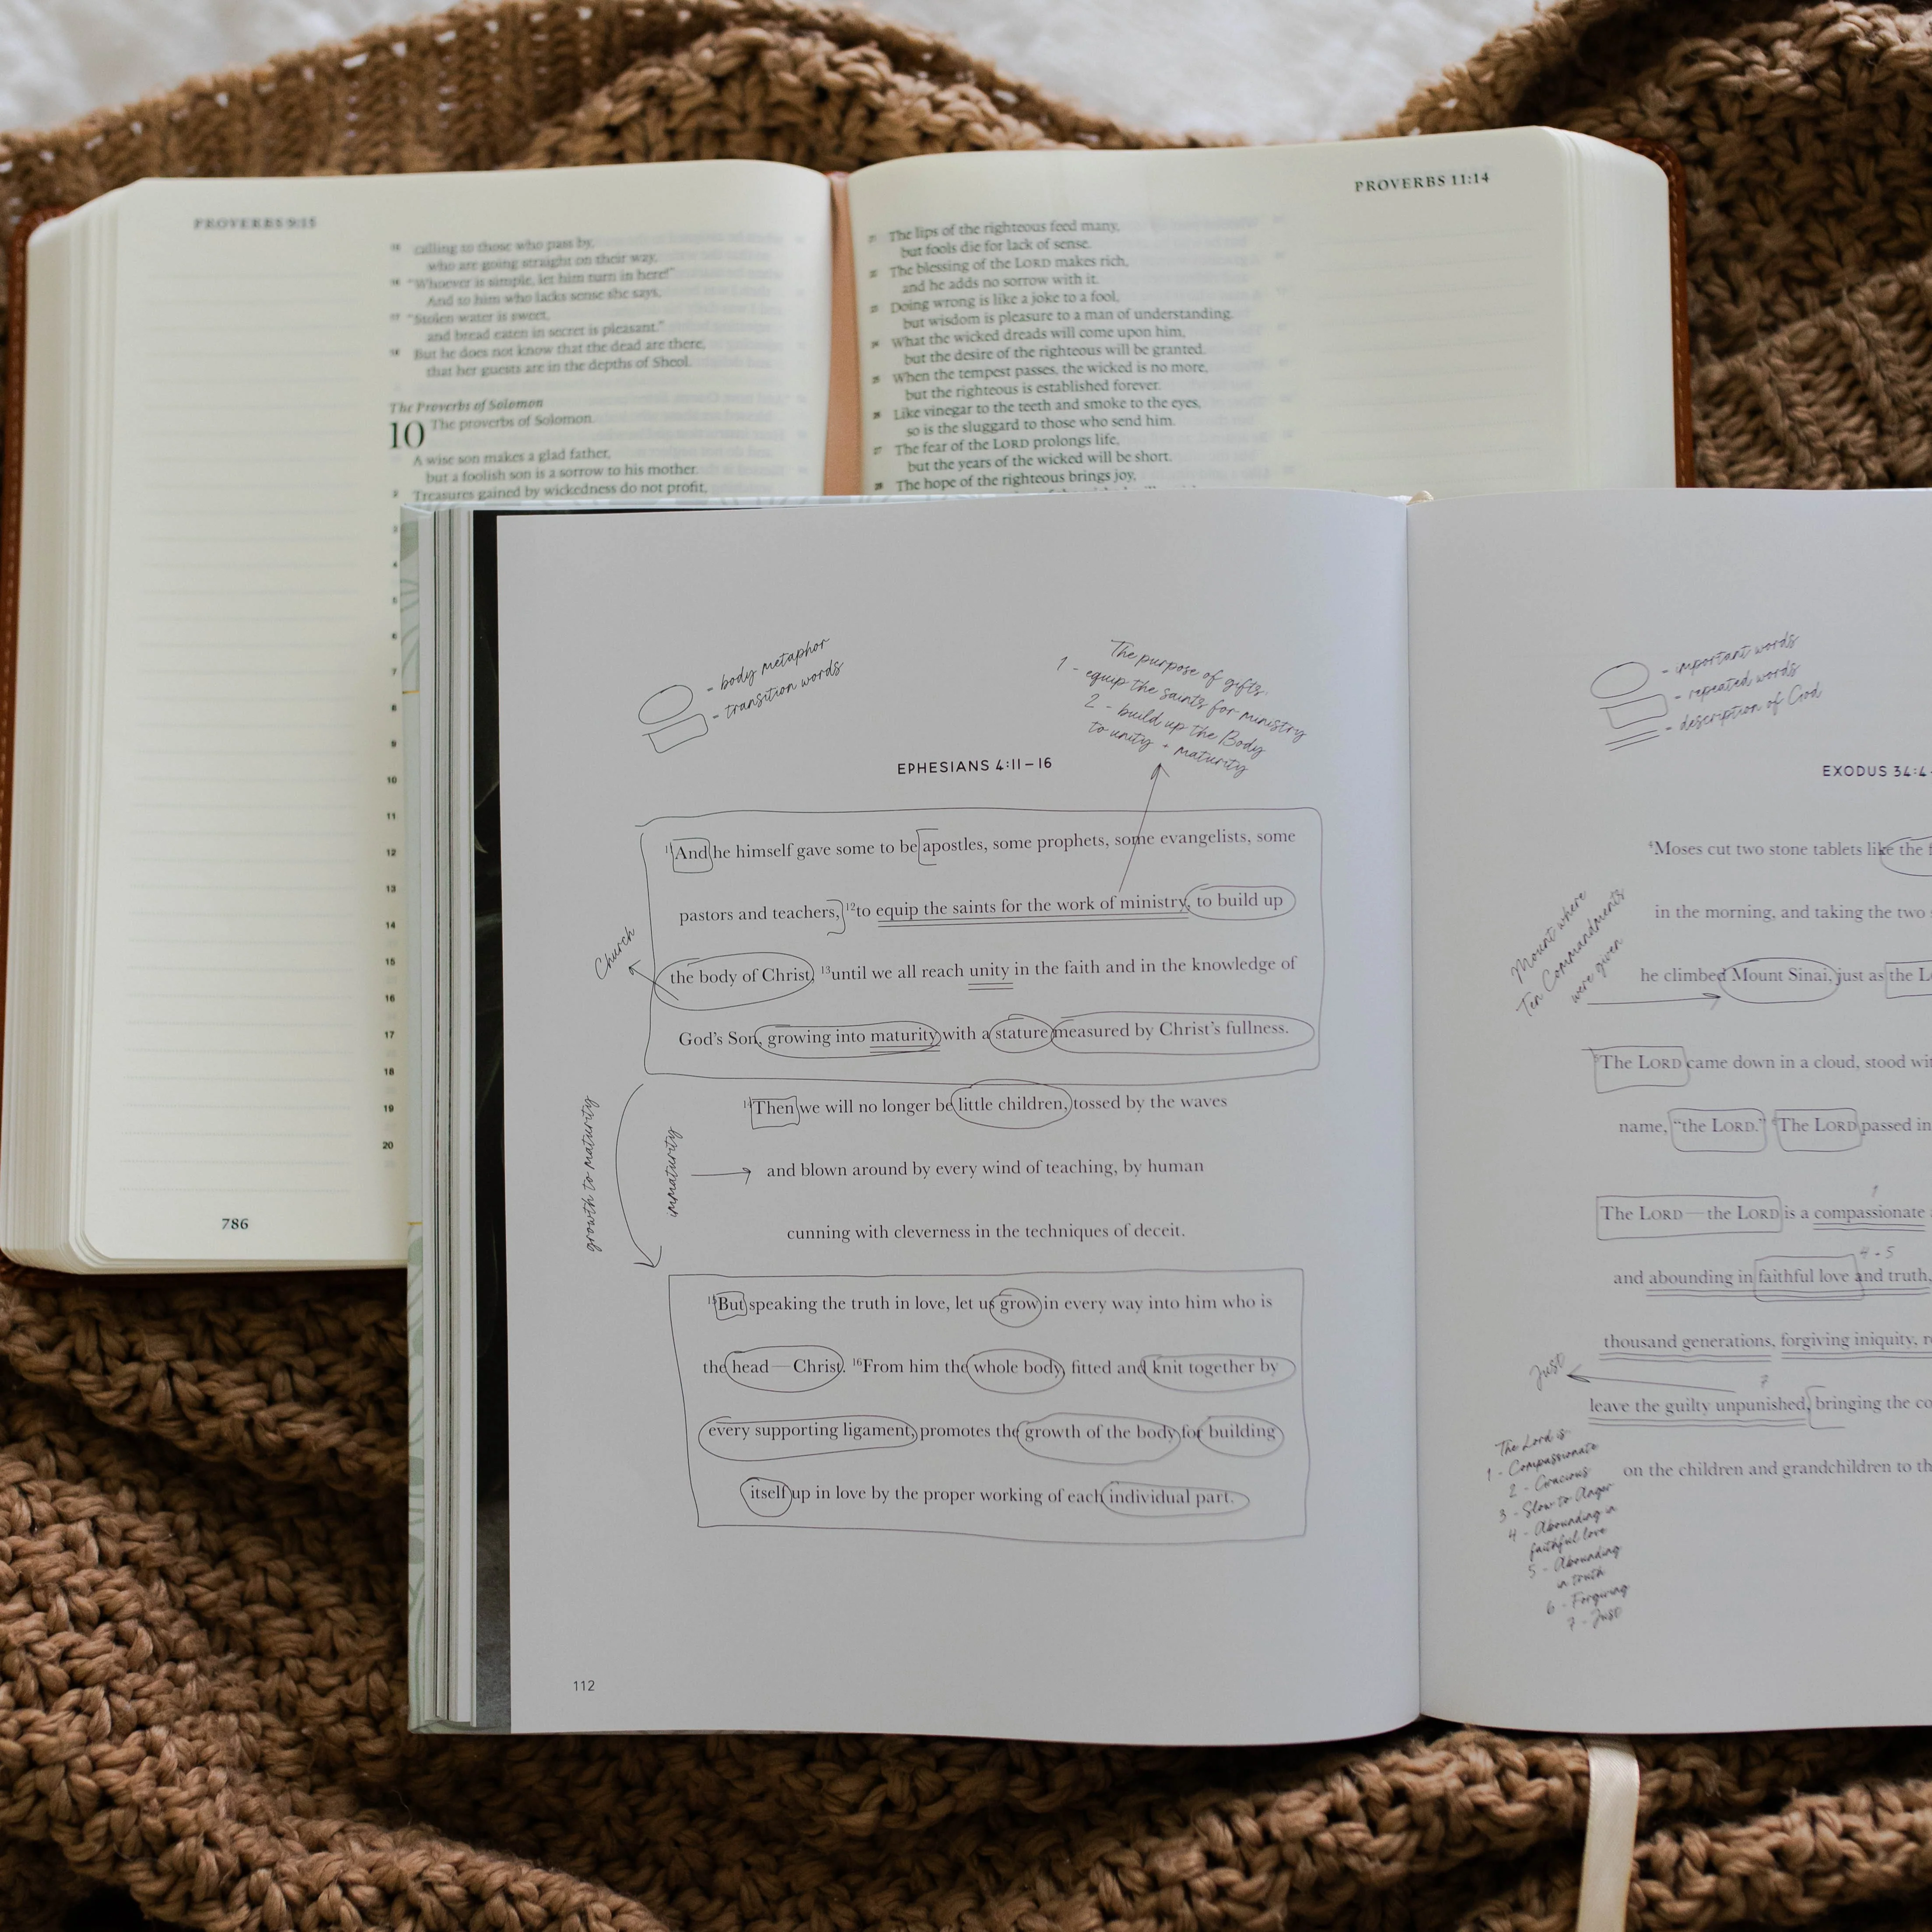 PROVERBS 9:15
15 calling to those who pass by,
who are going straight on their way,
16 “Whoever is simple, let him turn in here!”
And to him who lacks sense she says,
17 “Stolen water is sweet,
and bread eaten in secret is pleasant.”
18 But he does not know that the dead are there,
that her guests are in the depths of Sheol.
The Proverbs of Solomon
10 The proverbs of Solomon.
A wise son makes a glad father,
but a foolish son is a sorrow to his mother.
2 Treasures gained by wickedness do not profit,
3
4
5
6
7
8
9
10
11
12
13
14
15
16
17
18
19
20
786
PROVERBS 11:14
21 The lips of the righteous feed many,
but fools die for lack of sense.
22 The blessing of the LORD makes rich,
and he adds no sorrow with it.
23 Doing wrong is like a joke to a fool,
but wisdom is pleasure to a man of understanding.
24 What the wicked dreads will come upon him,
but the desire of the righteous will be granted.
25 When the tempest passes, the wicked is no more,
but the righteous is established forever.
26 Like vinegar to the teeth and smoke to the eyes,
so is the sluggard to those who send him.
27 The fear of the LORD prolongs life,
but the years of the wicked will be short.
28 The hope of the righteous brings joy,
- body metaphor
- transition words
The purpose of gifts:
1 - equip the saints for ministry
2 - build up the Body
to unity + maturity
EPHESIANS 4:11–16
11And he himself gave some to be apostles, some prophets, some evangelists, some
pastors and teachers, 12to equip the saints for the work of ministry, to build up
the body of Christ, 13until we all reach unity in the faith and in the knowledge of
God’s Son, growing into maturity with a stature measured by Christ’s fullness.
14Then we will no longer be little children, tossed by the waves
and blown around by every wind of teaching, by human
cunning with cleverness in the techniques of deceit.
15But speaking the truth in love, let us grow in every way into him who is
the head—Christ. 16From him the whole body, fitted and knit together by
every supporting ligament, promotes the growth of the body for building
itself up in love by the proper working of each individual part.
Church
growth to maturity
immaturity
112
- important words
- repeated words
- description of God
EXODUS 34:4
4Moses cut two stone tablets like the f
in the morning, and taking the two
he climbed Mount Sinai, just as the L
5The LORD came down in a cloud, stood wi
name, “the LORD.” 6The LORD passed in
The LORD—the LORD is a compassionate
1
4-5
and abounding in faithful love and truth,
thousand generations, forgiving iniquity, r
7
leave the guilty unpunished, bringing the co
on the children and grandchildren to th
Mount where
Ten Commandments
were given
Just
The Lord is:
1 - Compassionate
2 - Gracious
3 - Slow to Anger
4 - Abounding in
faithful love
5 - Abounding
in truth
6 - Forgiving
7 - Just